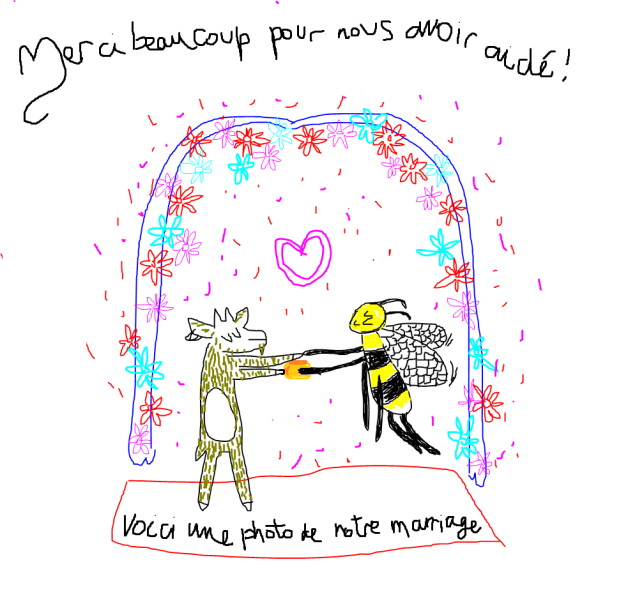 Merci beaucoup pour nous avoir aidé!
Voici une photo de notre marriage